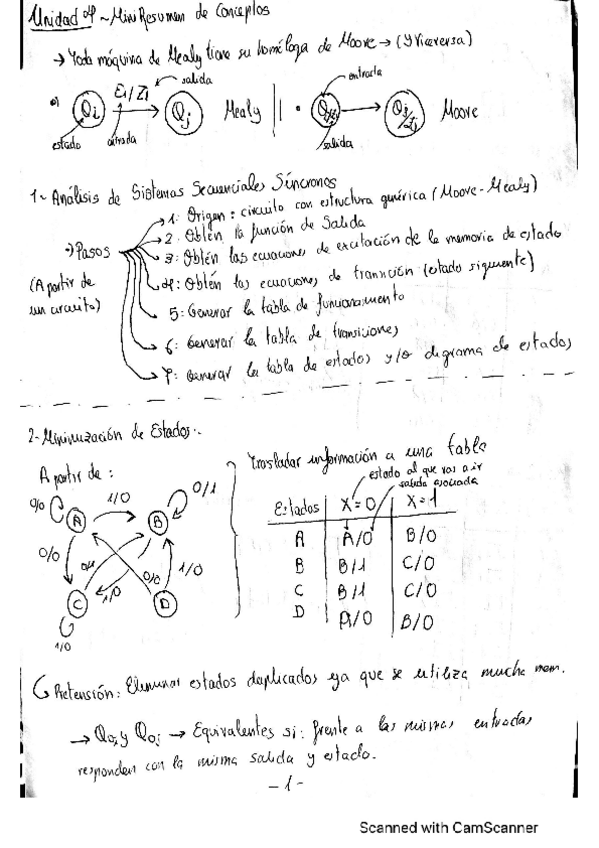 Unidad 04 ~ Mini Resumen de Conceptos
→ Toda máquina de Mealy tiene su homóloga de Moore → (y viceversa)
Ei/Zi salida entrada
Qi Qj Mealy Qi/Zi Qj/Zj Moore
estado entrada salida
1- Análisis de Sistemas Secuenciales Síncronos
→ Pasos
(A partir de
un circuito)
1: Origen: circuito con estructura genérica (Moore - Mealy)
2: Obtén la función de Salida
3: Obtén las ecuaciones de excitación de la memoria de estado
4: Obtén las ecuaciones de transición (estado siguiente)
5: Generar la tabla de funcionamiento
6: Generar la tabla de transiciones
7: Generar la tabla de estados y/o digrama de estados
2- Minimización de Estados.-
A partir de:
0/0 A 1/0 B 0/1
0/0 0/1 0/0 1/0
C 1/0 D
1/0
Trasladar información a una tabla
estado al que vas a ir
salida asociada
Estados X=0 X=1
A A/0 B/0
B B/1 C/0
C B/1 C/0
D A/0 B/0
Pretensión: Eliminar estados duplicados ya que se utiliza mucha mem.
→ Qi y Qj → Equivalentes si: frente a las mismas entradas
responden con la misma salida y estado.
- 1 -
Scanned with CamScanner